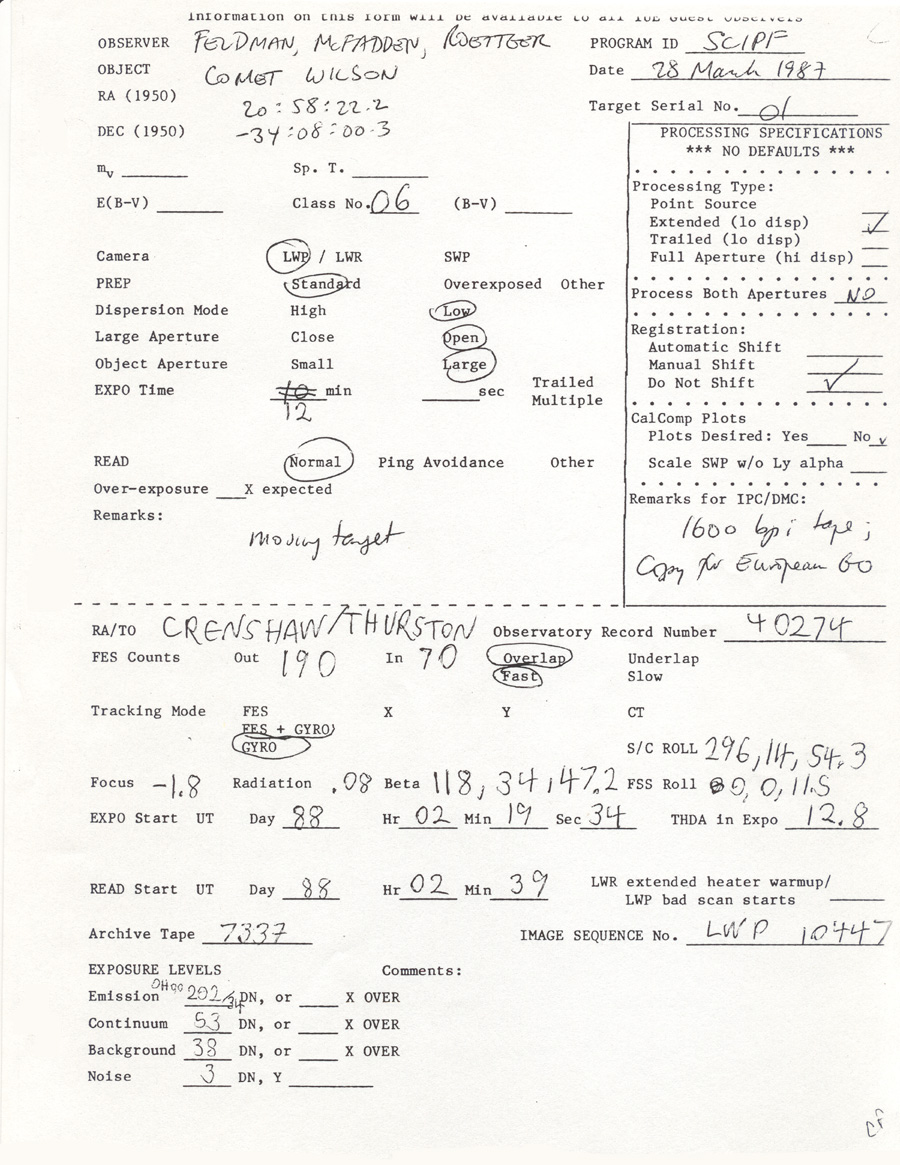 Information on this form will be available to all IUE Guest Observers
OBSERVER FELDMAN, McFADDEN, ROETTGER PROGRAM ID SCIPF
OBJECT COMET WILSON Date 28 March 1987
RA (1950) 20:58:22.2
Target Serial No. 01
DEC (1950) -34:08:00.3
PROCESSING SPECIFICATIONS
*** NO DEFAULTS ***
mv ____ Sp. T. ____
Processing Type:
Point Source
E(B-V) ____ Class No. 06 (B-V) ____
Extended (lo disp) ✓
Trailed (lo disp)
Full Aperture (hi disp)
Camera LWP / LWR SWP
PREP Standard Overexposed Other
Process Both Apertures NO
Dispersion Mode High Low
Registration:
Large Aperture Close Open
Automatic Shift
Object Aperture Small Large
Manual Shift
Do Not Shift ✓
EXPO Time 10 min ____ sec Trailed
12 Multiple
CalComp Plots
Plots Desired: Yes____ No ✓
READ Normal Ping Avoidance Other
Scale SWP w/o Ly alpha ____
Over-exposure ___X expected
Remarks for IPC/DMC:
Remarks:
moving target
1600 bpi tape;
Copy for European GO
RA/TO CRENSHAW/THURSTON Observatory Record Number 40274
FES Counts Out 190 In 70 Overlap Underlap
Fast Slow
Tracking Mode FES X Y CT
FES + GYRO
GYRO S/C ROLL 296,14,54.3
Focus -1.8 Radiation .08 Beta 118,34,47.2 FSS Roll 0,0,11.5
EXPO Start UT Day 88 Hr 02 Min 19 Sec 34 THDA in Expo 12.8
READ Start UT Day 88 Hr 02 Min 39 LWR extended heater warmup/
LWP bad scan starts ____
Archive Tape 7337 IMAGE SEQUENCE No. LWP 10447
EXPOSURE LEVELS Comments:
Emission 202 DN, or ____ X OVER
Continuum 53 DN, or ____ X OVER
Background 38 DN, or ____ X OVER
Noise 3 DN, Y ____